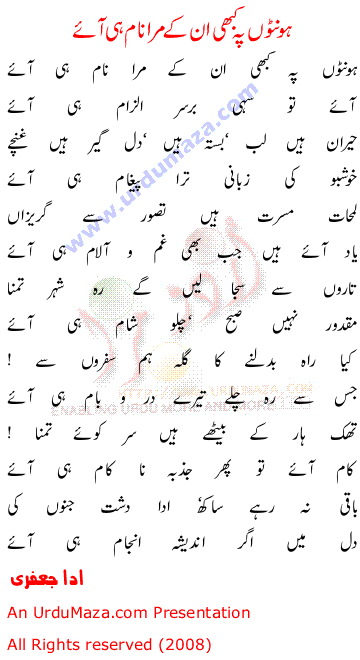 ہونٹوں پہ کبھی ان کے مرا نام ہی آئے
ہونٹوں پہ کبھی ان کے مرا نام ہی آئے
آئے تو سہی برسر الزام ہی آئے
حیران ہیں لب 'بستہ ہیں 'دل گیر ہیں غنچے
خوشبو کی زبانی ترا پیغام ہی آئے
لمحات مسرت ہیں تصور سے گریزاں
یاد آئے ہیں جب بھی غم و آلام ہی آئے
تاروں سے سجا لیں گے رہ شہر تمنا
مقدور نہیں صبح 'چلو شام ہی آئے
کیا راہ بدلنے کا گلہ ہم سفروں سے !
جس سے رہ چلے تیرے در و بام ہی آئے
تھک ہار کے بیٹھے ہیں سر کوئے تمنا !
کام آئے تو پھر جذبہ نا کام ہی آئے
باقی نہ رہے ساکھ' ادا دشت جنوں کی
دل میں اگر اندیشہ انجام ہی آئے
ادا جعفری
An UrduMaza.com Presentation
All Rights reserved (2008)
www.urdumaza.com
اردو مزا
HTTP://WWW.URDUMAZA.COM
ENABLING URDU MORE AND MORE